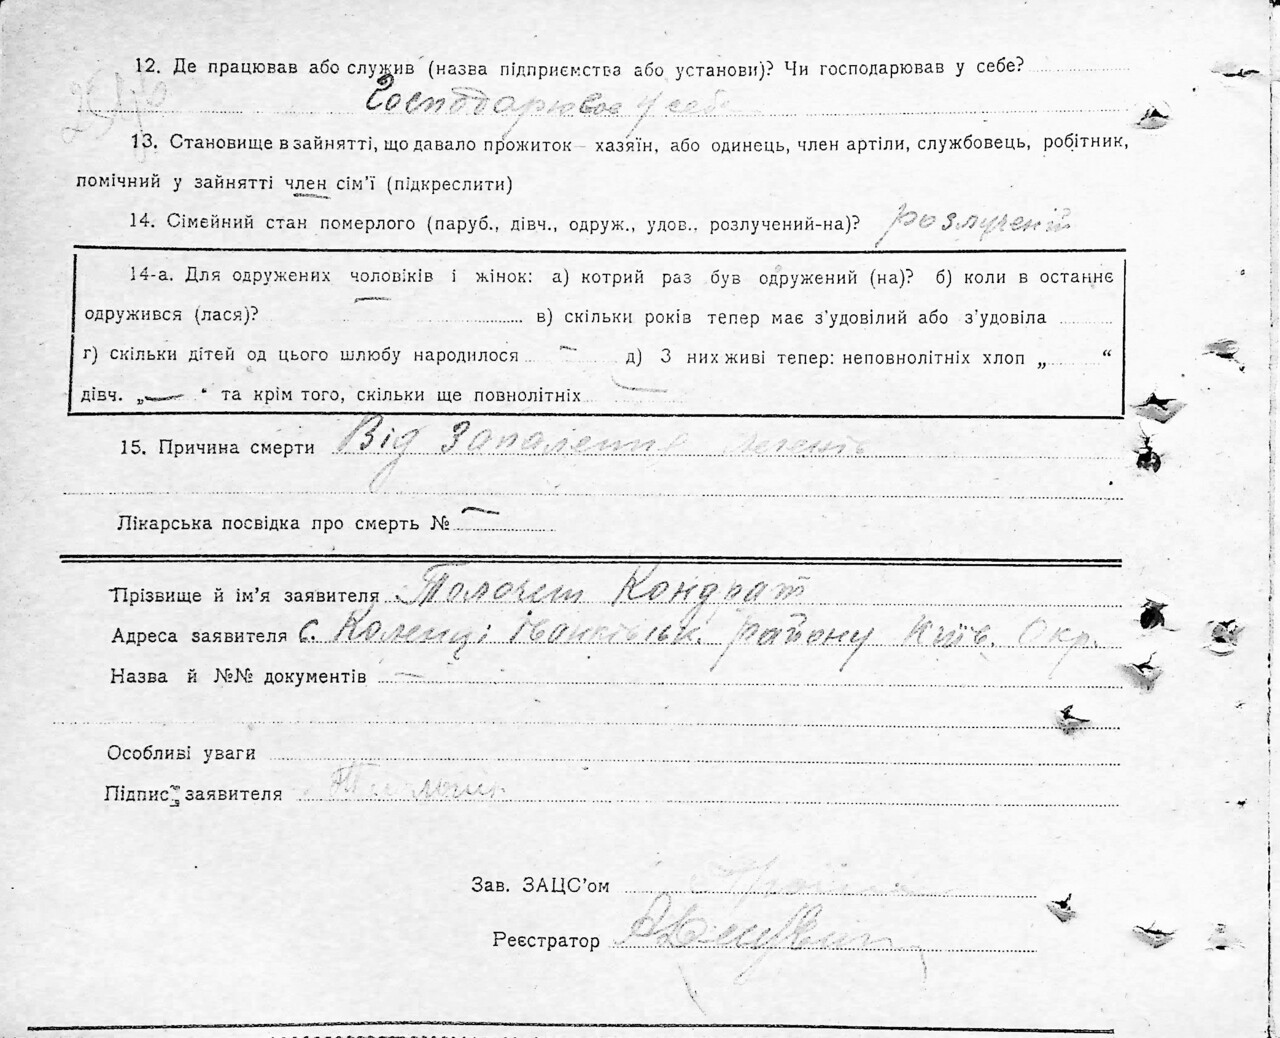 12. Де працював або служив (назва підприємства або установи)? Чи господарював у себе?
Господарював у себе
13. Становище в зайнятті, що давало прожиток — хазяїн, або одинець, член артіли, службовець, робітник,
помічний у зайнятті член сім'ї (підкреслити)
14. Сімейний стан померлого (паруб., дівч., одруж., удов., розлучений-на)? розлучений
14-а. Для одружених чоловіків і жінок: а) котрий раз був одружений (на)? б) коли в останнє
одружився (лася)? — в) скільки років тепер має з'удовілий або з'удовіла
г) скільки дітей од цього шлюбу народилося — д) З них живі тепер: неповнолітніх хлоп „ “
дівч. „—“ та крім того, скільки ще повнолітніх —
15. Причина смерти Від Запалення легенів
Лікарська посвідка про смерть № —
Прізвище й ім'я заявителя Кондрат
Адреса заявителя с. Коленці Іванківськ. району Київ. Окр.
Назва й №№ документів —
Особливі уваги
Підпис заявителя
Зав. ЗАЦС'ом
Реєстратор